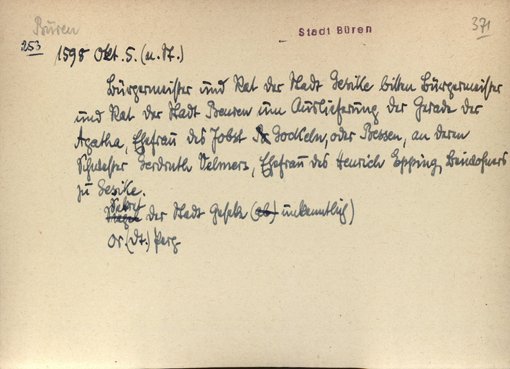 Büren
Stadt Büren
371
253
1598 Okt. 5. (n. St.)
Bürgermeister und Rat der Stadt Gesike bitten Bürgermeister
und Rat der Stadt Beuren um Auslieferung der Gerade der
Agatha, Ehefrau des Jobst Godkeln, oder Bessen, an deren
Schwester Gerdruth Velmers, Ehefrau des Henrich Epping, Beiwohners
zu Gesike.
Sekret
der Stadt Geseke (ab) unkenntlich)
Or. (dt.) Perg.